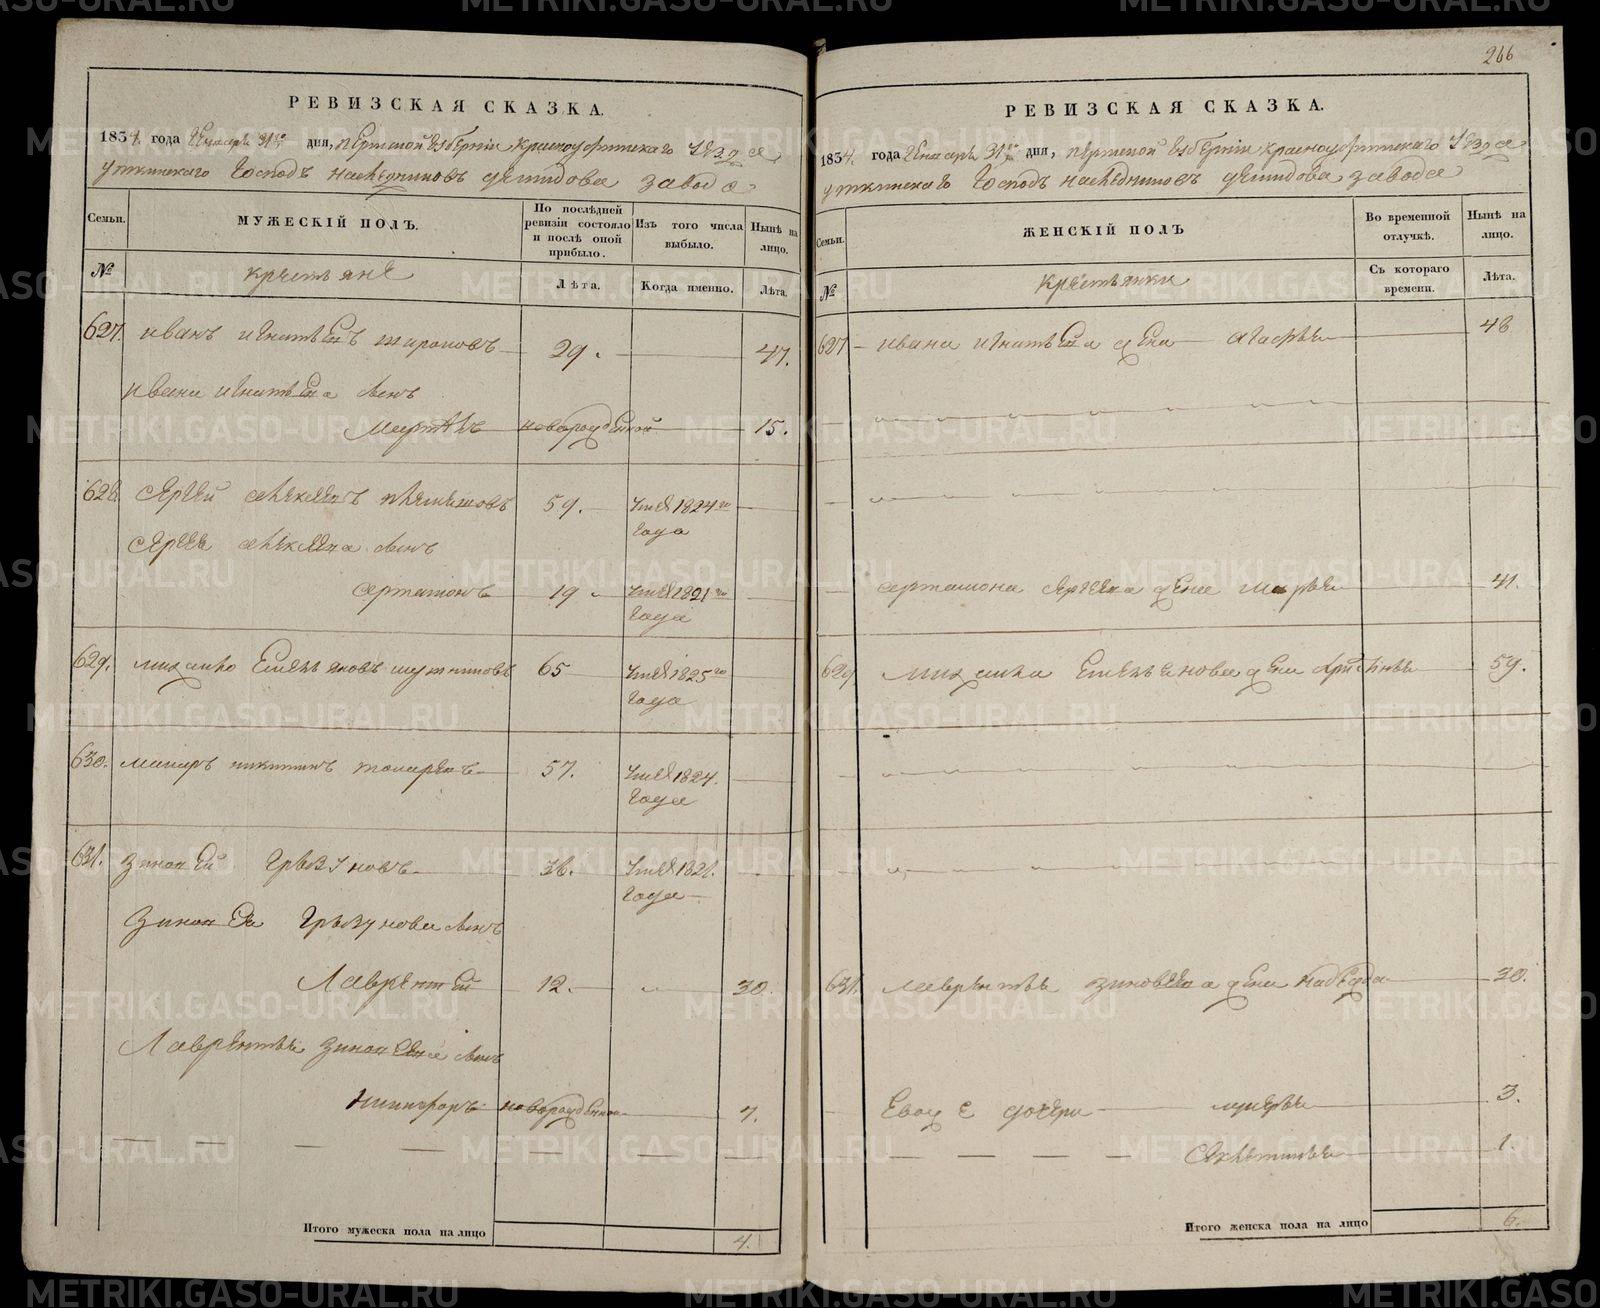 266
РЕВИЗСКАЯ СКАЗКА.
1834. года Генваря 31го дня, Пермской Губернiи Красноуфимскаго уезда
уткинскаго Господъ наследниковъ демидова завода
Семьи.
МУЖЕСКIЙ ПОЛЪ.
По послѣдней ревизiи состояло и послѣ оной прибыло.
Изъ того числа выбыло.
Нынѣ на лицо.
№
крестьяне
Лѣта.
Когда именно.
Лѣта.
627. иванъ игнатьевъ 29. 47.
ивана игнатьева сынъ
новорожденной 15.
628. сергей алексеевъ 59. умеръ 1824го
года
сергея алексеева сынъ
19. умеръ 1821го
года
629. михайло Емельяновъ 65 умеръ 1825го
года
630. макаръ никитинъ токаревъ 57. умеръ 1824.
года
631. зиновей грызуновъ 38. умеръ 1821.
года
зиновея грызунова сынъ
Лаврентей 12. 30.
Лаврентья зиновеева сынъ
никифоръ новорожденной 7.
Итого мужеска пола на лицо 4.
РЕВИЗСКАЯ СКАЗКА.
1834. года Генваря 31го дня, пермской губернiи красноуфимскаго уезда
уткинскаго Господъ наследниковъ демидова завода
Семьи.
ЖЕНСКIЙ ПОЛЪ
Во временной отлучкѣ.
Нынѣ на лицо.
№
крестьянки
Съ котораго времени.
Лѣта.
627 ивана игнатьева жена агафья 48
сергеева жена марья 41.
629 михайла Емельянова жена 59.
631. лаврентья зиновеева жена надежда 30.
Евож е дочери 3.
1.
Итого женска пола на лицо 6.
METRIKI.GASO-URAL.RU